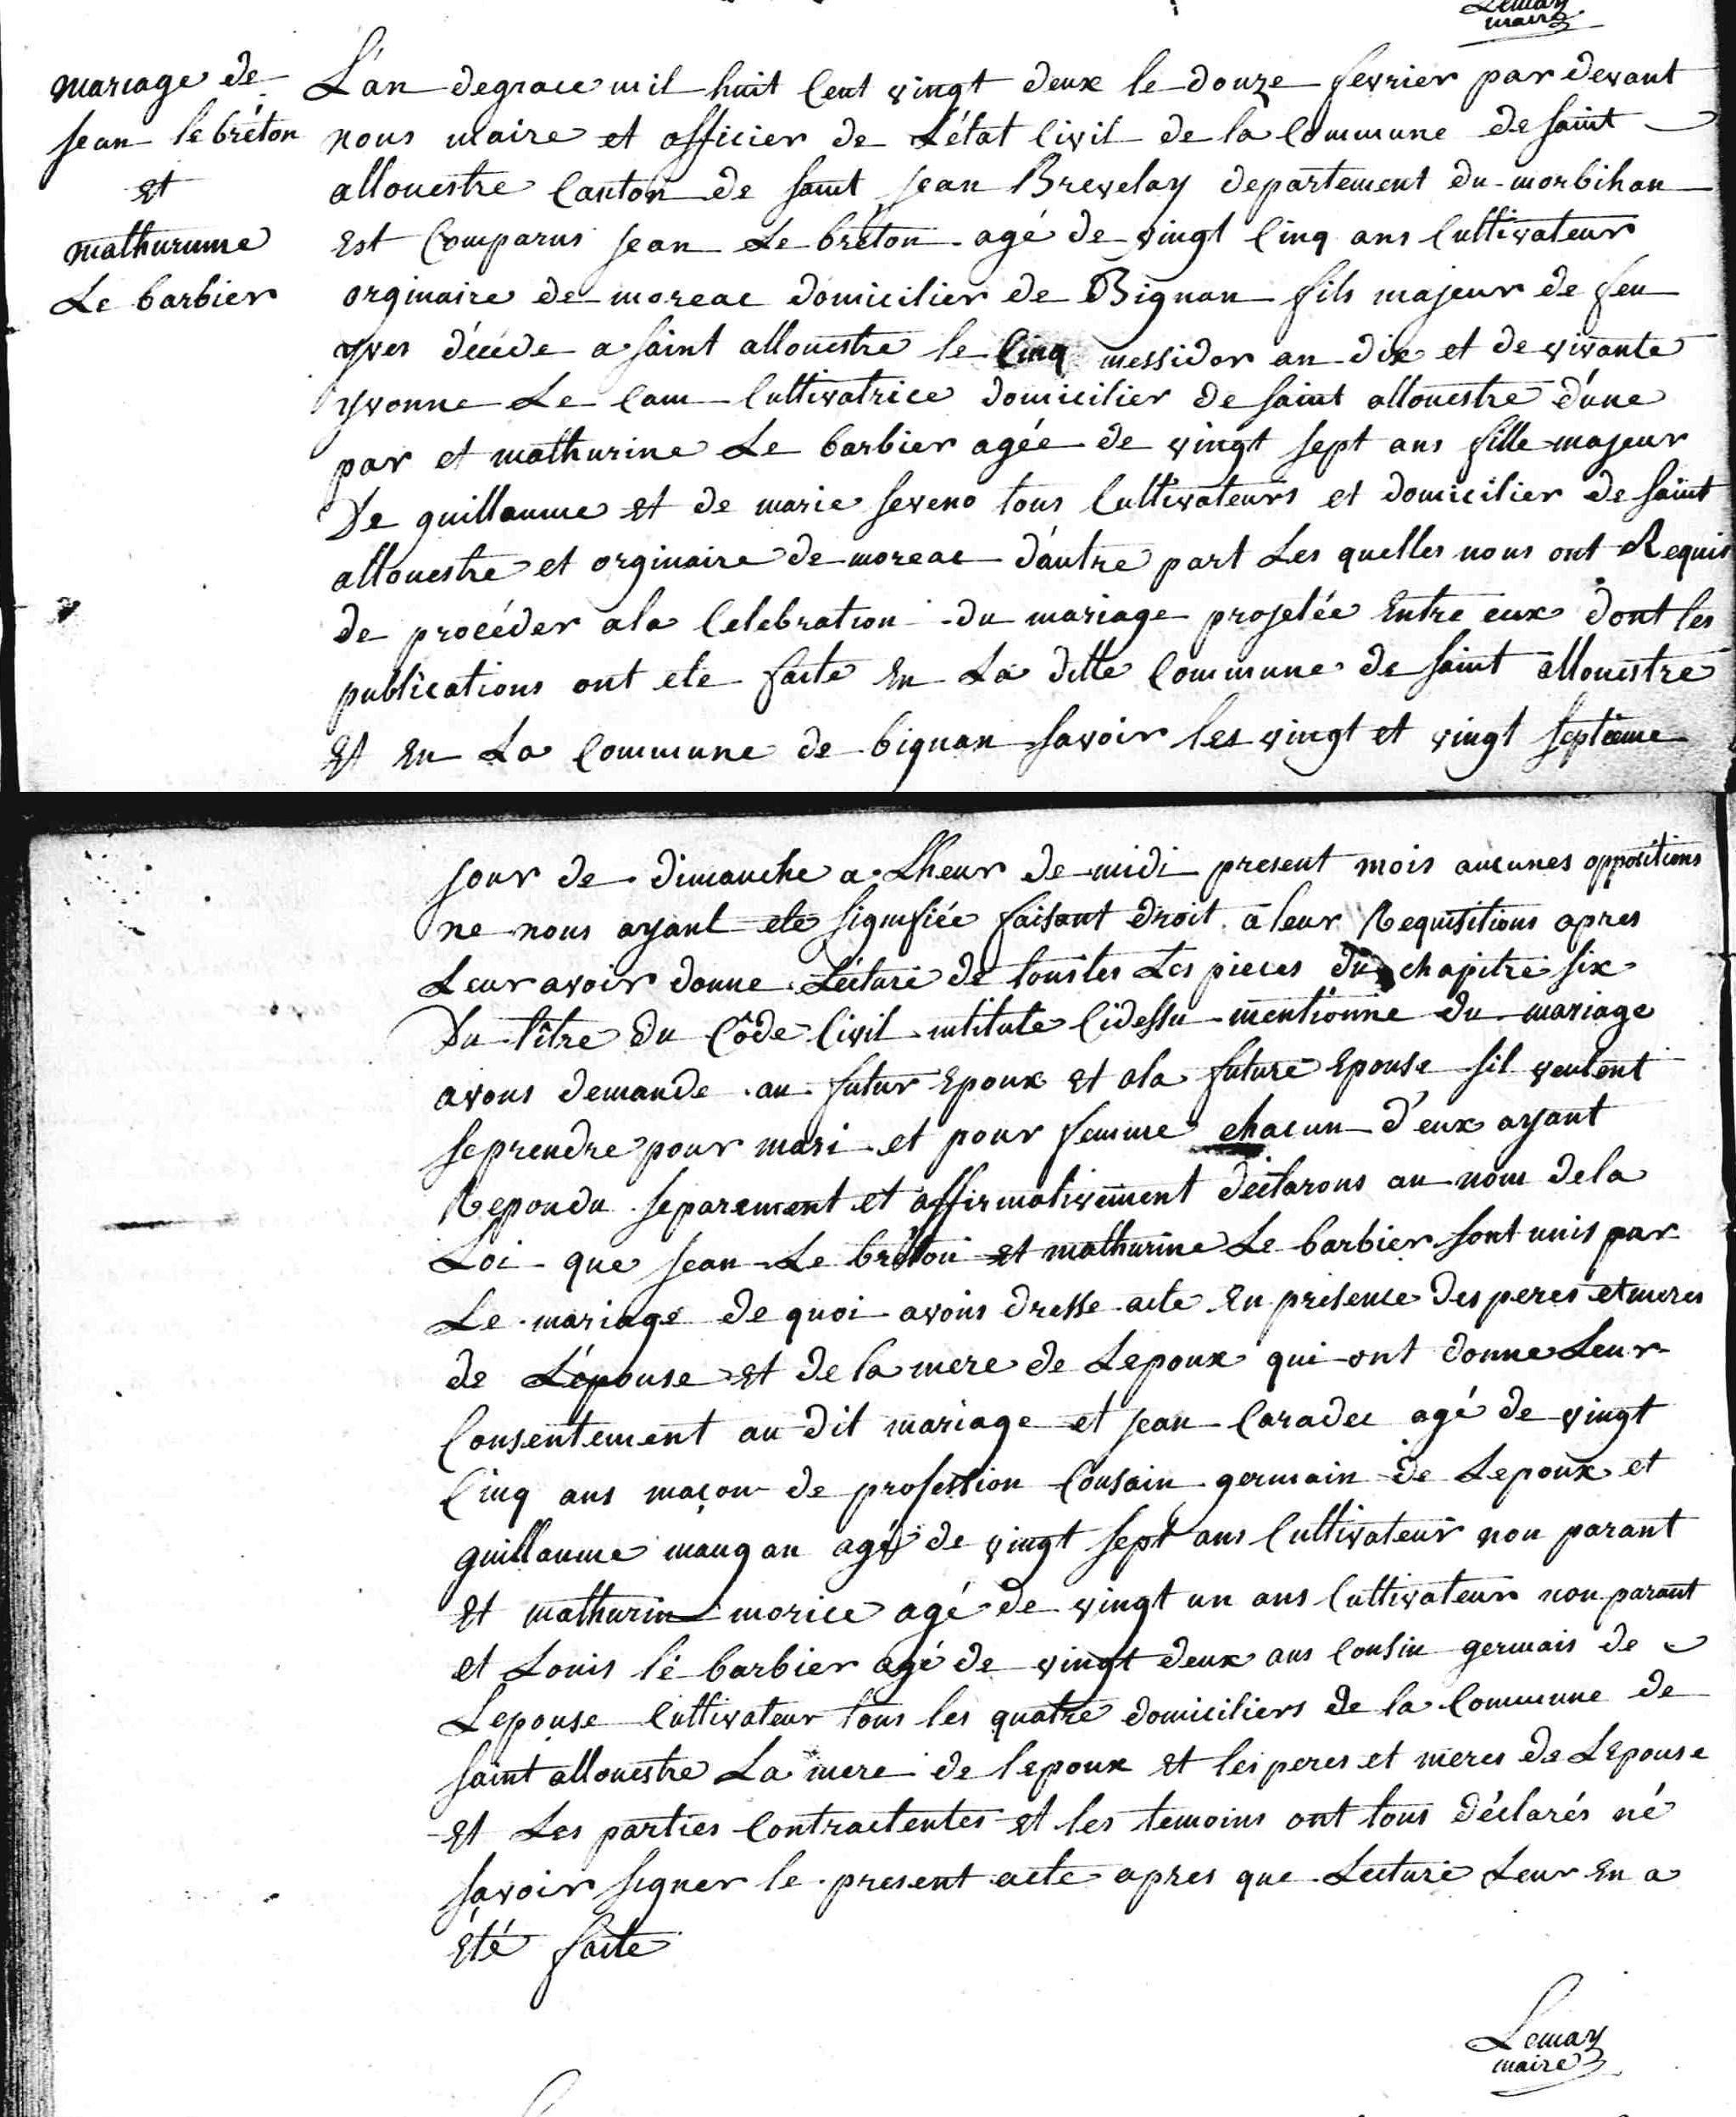 Lemay
maire
mariage de
jean le bréton
et
mathurinne
Le barbier
L'an degrace mil huit Cent vingt deux le douze fevrier par devant
nous maire et officier de L'état Civil de la Commune de saint
allouestre Canton de saint jean Brevelay departement du morbihan
Est Comparus jean Le bréton agé de vingt Cinq ans Cultivateur
orginaire de moreac domicilier de Bignan fils majeur de feu
yves décéde a saint allouestre le Cinq messidor an dix et de vivante
yvonne Le Cam Cultivatrice domicilier de saint allouestre d'une
par et mathurine Le barbier agée de vingt sept ans fille majeur
De guillaume et de marie seveno tous Cultivateurs et domicilier de saint
allouestre et orginaire de moreac d'autre part Les quelles nous ont Requis
de procéder a la Celebration du mariage projetée Entre eux dont les
publications ont ete faite En La ditte Commune de saint allouestre
Et En La Commune de bignan savoir les vingt et vingt septieme
jour de dimanche a Lheur de midi present mois aucunes oppositions
ne nous ayant ete signifiée faisant droit a leur Requisitions apres
Leur avoir donne Lécture de toustes Les pieces du chapitre six
Du titre du Côde Civil intitute Cidessu mentionne du mariage
avons demande au futur Epoux et a la future Epouse sil veulent
se prendre pour mari et pour femme chacun d'eux ayant
Repondu separement et affirmativement déclarons au nom de la
Loi que jean Le bréton et mathurine Le barbier sont unis par
Le mariage de quoi avons dresse acte En présence des peres et meres
de L'épouse et de la mere de Lepoux qui ont donne Leur
Consentement au dit mariage et jean Caradec agé de vingt
Cinq ans maçon de profession Cousain germain de Lepoux et
guillaume maugan agé de vingt sept ans Cultivateur non parant
Et mathurin morice agé de vingt un ans Cultivateur non parant
et Louis lé barbier agé de vingt deux ans Cousin germais de
Lepouse Cultivateur tous les quatre domiciliers de la Commune de
saint allouestre La mere de lepoux et les peres et meres de LEpouse
et Les parties Contractentes et les temoins ont tous déclarés né
savoir signer le present acte apres que Lecture Leur En a
été faite
Lemay
maire